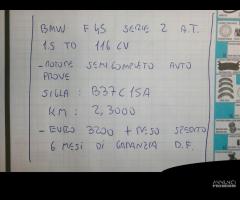 BMW F45 SERIE 2 A.T.
1.5 TD 116 CV
- MOTORE SEMICOMPLETO AUTO
PROVE
SIGLA : B37C15A
KM : 2,3000
- EURO 3200 + RESO SPEDITO
6 MESI DI GARANZIA D.F.